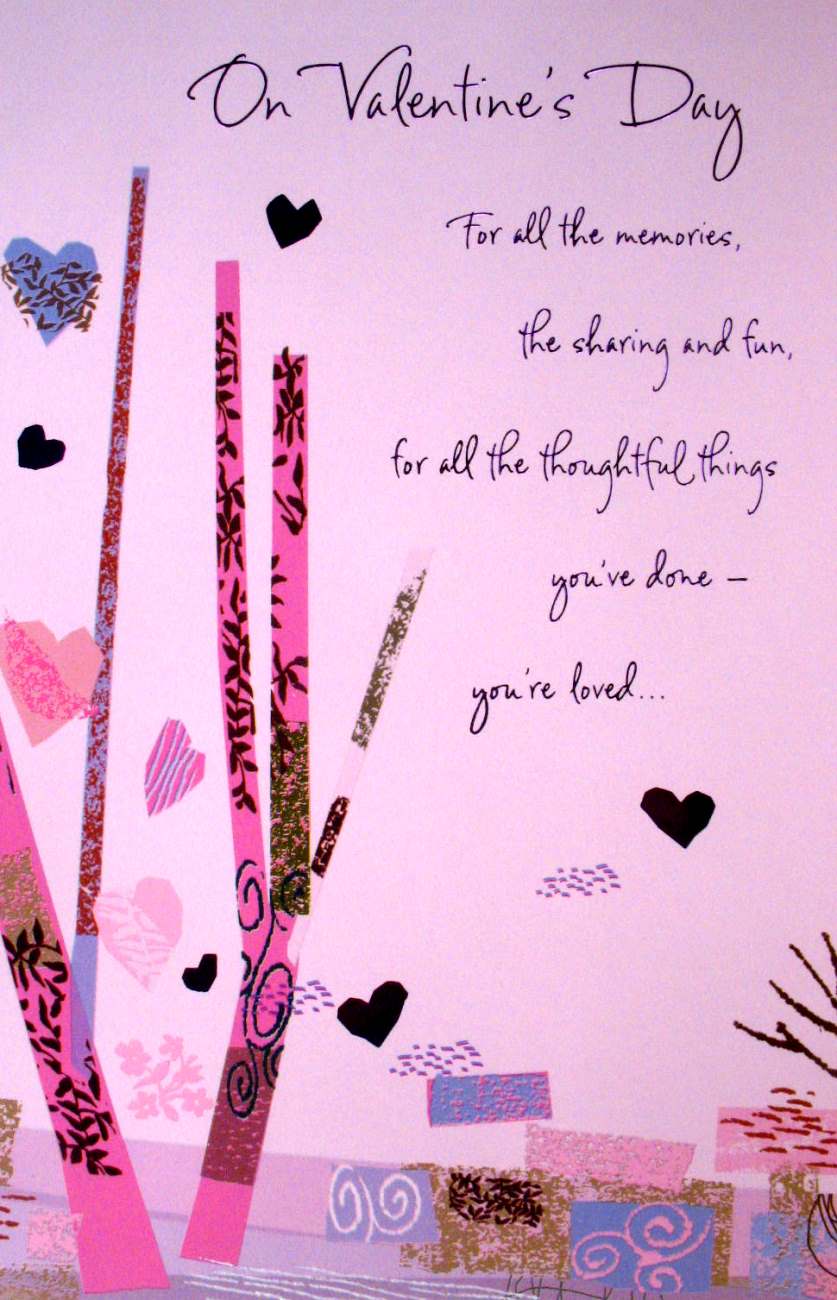 On Valentine's Day
For all the memories,
the sharing and fun,
for all the thoughtful things
you've done –
you're loved...